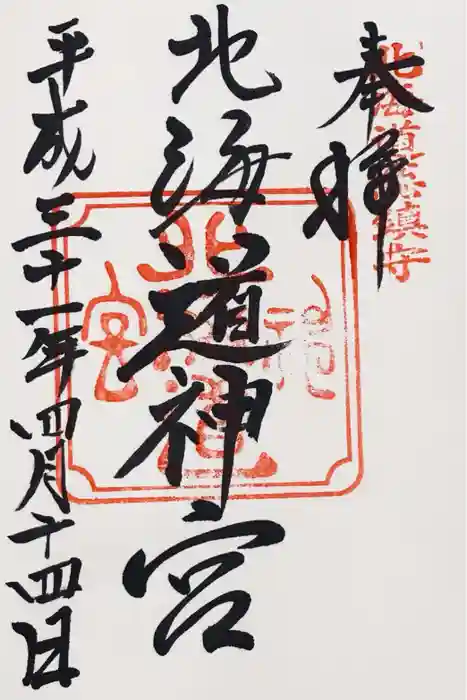 奉拝
北海道総鎮守
北海道神宮
平成三十一年四月十四日